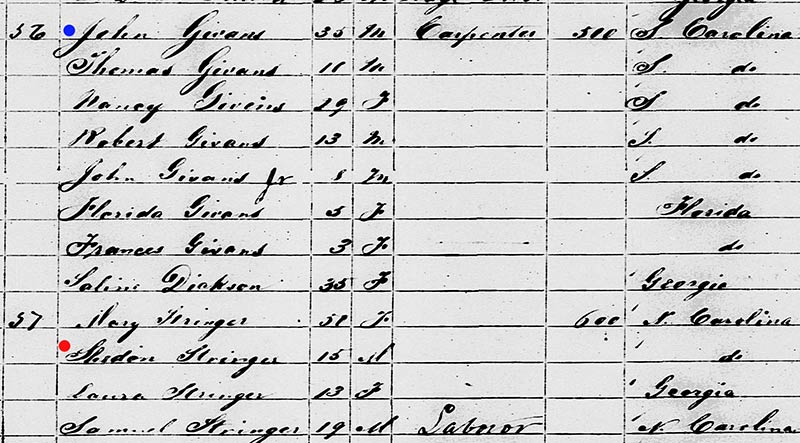 56 John Givans 35 M Carpenter 500 S. Carolina
Thomas Givans 11 M S. do
Nancy Givens 29 F S do
Robert Givans 13 M S. do
John Givans Jr 8 M S. do
Florida Givans 5 F Florida
Frances Givans 3 F do
Saline Dickson 35 F Georgia
57 Mary Stringer 58 F 600 N. Carolina
Stringer 15 M do
Laura Stringer 13 F Georgia
Samuel Stringer 19 M Laboror N. Carolina